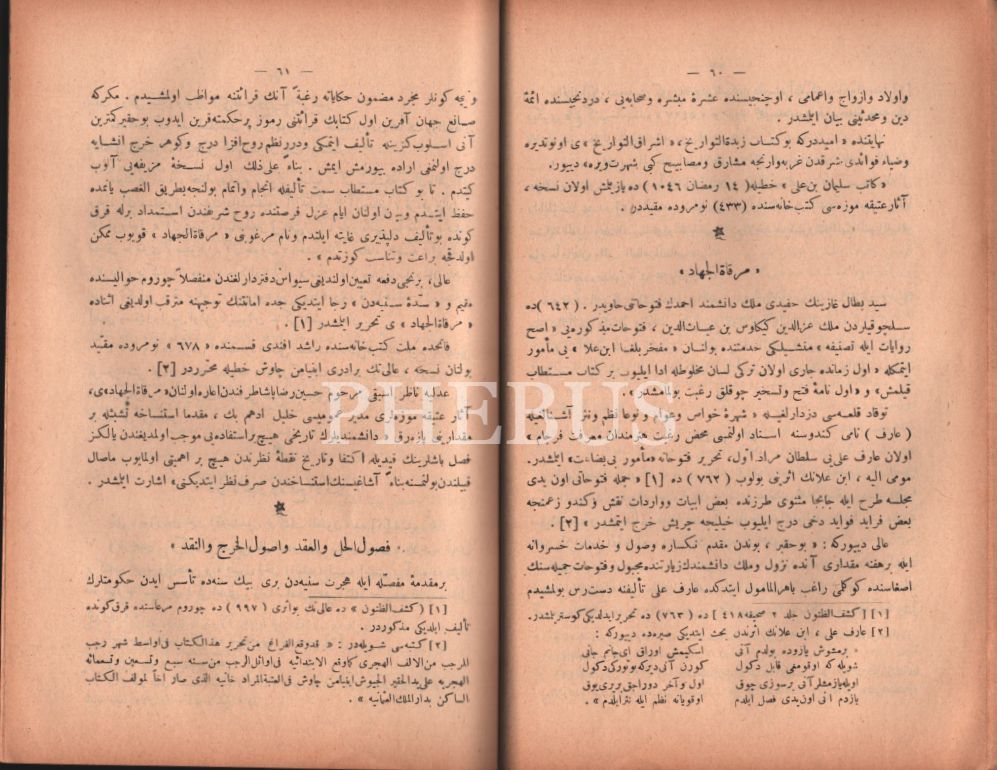 — ٦٠ —
واولاد وازواج واعمامی ، اوچنجیسنده عشرۀ مبشره وصحابه‌یی ، دردنجیسنده ائمۀ
دین ومحدثینی بیان ایلشدر .
نهایتنده « امیددرکه بوکتاب زبدة‌التواریخ ، « اشراق‌التواریخ » ی اونوتدیره
وضیاء فوائدی شرقدن غربه‌وارنجه مشارق ومصابیح کبی شهرت‌ویره» دیبور .
« کاتب سلیمان بن‌علی » خطیله ( ١٤ رمضان ١٠٤٦ ) ده یازیلمش اولان نسخه ،
آثار عتیقه موزه‌سی کتب‌خانه‌سنده (٤٣٣) نومروده مقیددر .
« مرقاة‌الجهاد »
سید بطال غازینك حفیدی ملك دانشمند احمدك فتوحاتنی حاویدر . ( ٦٤٢ ) ده
سلجوقیلردن ملك عزالدین کیکاوس بن غیاث‌الدین ، فتوحات مذکوره‌یی « اصح
روایات ایله تصنیفه » منشیلکی خدمتنده بولنان « مفخر بلغا ابن‌علا » یی مأمور
ایتمکله « اول زمانده جاری اولان ترکی لسان مخلوطله ادا ایلیوب بر کتاب مستطاب
قیلمش » و « اول نامۀ فتح و تسخیر جوقلق رغبت بولمامشدر » .
توقاد قلعه‌سی دزدارلغیله « شهرۀ خواص وعوام و نوعا نظم ونثر آشنالغیله
( عارف ) نامی کندوسنه اسناد اولنمسی محض رغبت هنرمندان معرفت فرجام »
اولان عارف علی‌یی سلطان مراد اول ، تحریر فتوحاته «مأمور بی‌بضاعت» ایلمشدر .
مومی الیه ، ابن علانك اثرینی بولوب ( ٧٦٢ ) ده [١] « جمله فتوحاتی اون یدی
مجلسه طرح ایله جابجا مثنوی طرزنده بعض ابیات وواردات نقش وکندو زعمنجه
بعض فراید فواید دخی درج ایلیوب خیلیجه چریش خرج ایتمشدر » [٢] .
عالی دیبورکه : « بوحقیر ، بوندن مقدم نکساره وصول و خدمات خسروانه
ایله برهفته مقداری آنده نزول وملك دانشمندك زیارتنده مجبول وفتوحات جمیله‌سنك
اصغاسنده کوکلمی راغب باهرالمامول ایتدکده عارف علی تألیفنه دست‌رس بولمشیدم
[١] ( کشف‌الظنون جلد ٢ صحیفه ٤١٨ ) ده ( ٧٦٣ ) ده تحریر ایدلدیکی کوسترلمشدر .
[٢] عارف علی ، ابن علانك اثرندن بحث ایتدیکی صیره‌ده دیبورکه :
« برمشوش یازوده بولدم آنی
اسکیمش اوراق ای‌جانم جانی
شویله‌که اوقومغی قابل دکول
کورن آنی دیرکه بوتورکی دکول
اویله‌یازمشلر آنی برسوزی چوق
اول و آخر دوراجق بریری‌یوق
یازدم آنی اون‌یدی فصل ایلدم
اوقویانه نظم ایله نثرایلدم » .
— ٦١ —
ونیجه کونلر مجرد مضمون حکایاته رغبةً آنك قرائتنه مواظب اولمشیدم . مکرکه
صانع جهان آفرین اول کتابك قرائتنی رموز پرحکمته‌قرین ایدوب بوحقیرکمترین
آنی اسلوب کزینه تألیف ایتمکی ودررنظم روح‌افزا درج وکوهر خرج انشایه
درج اولنمغی اراده بیورمش ایمش . بناءً علی‌ذلك اول نسخۀ مزیفه‌یی آلوب
کیتدم . تا بو کتاب مستطاب سمت تألیفله انجام واتمام بولنجه‌بطریق الغصب یانمده
حفظ ایتدم وبین اولنان ایام عزل فرصتنده روح شریفندن استمداد برله قرق
کونده بوتألیف دلپذیری غایته ایلتدم ونام مرغوبنی « مرقاة‌الجهاد » قویوب ممکن
اولدقجه براعت وتناسب کوزتدم » .
عالی ، برنجی دفعه تعیین اولندیغی سیواس دفتردارلغندن منفصلاً چوروم حوالیسنده
مقیم و « سدۀ سنیه‌دن » رجا ایتدیکی جده امانتنك توجیهنه مترقب اولدیغی اثناده
« مرقاة‌الجهاد » ی تحریر ایلمشدر [١] .
فاتحده ملت کتب‌خانه‌سنده راشد افندی قسمنده « ٦٧٨ » نومروده مقید
بولنان نسخه ، عالی‌نك برادری ابنیامین چاوش خطیله محرردر [٢] .
عدلیه ناظر اسبقی مرحوم حسین رضا پاشاطرفندن اعاره اولنان «مرقاة‌الجهاد» ی ،
آثار عتیقه موزه‌لری مدیر عمومیسی خلیل ادهم بك ، مقدما استنساخه تشبثله بر
مقدارینی یازدیرق « دانشمندیلرك تاریخنی هیچ بر استفاده‌یی موجب اولمدیغندن یالکز
فصل باشلرینك قیدیله اکتفا وتاریخ نقطۀ نظرندن هیچ بر اهمیتی اولمایوب ماصال
قبیلندن‌بولنمسنه بناءً آشاغیسنك استنساخندن صرف نظر ایتدیکنی » اشارت ایلمشدر .
« فصول الحل والعقد واصول الخرج والنقد »
برمقدمۀ مفصله ایله هجرت سنیه‌دن بری بیك سنه‌ده تأسس ایدن حکومتلرك
[١] « کشف‌الظنون » ده عالی‌نك بواثری ( ٩٩٧ ) ده چوروم مرعاسنده قرق کونده
تألیف ایلدیکی مذکوردر .
[٢] کتبه‌سی شویله‌در : « قد وقع الفراغ من تحریر هذا الکتاب فی اواسط شهر رجب
المرجب من الالف الهجری کاوقع الابتدائیه فی اوائل الرجب من سنه سبع وتسعین وتسعمائه
الهجریه علی ید الحقیر الجیوش ابنیامین چاوش فی العتبة المراد خانیه الذی صار اخاً لمولف الکتاب
الساکن بدارالملك العثمانیه » .
PHEBUS